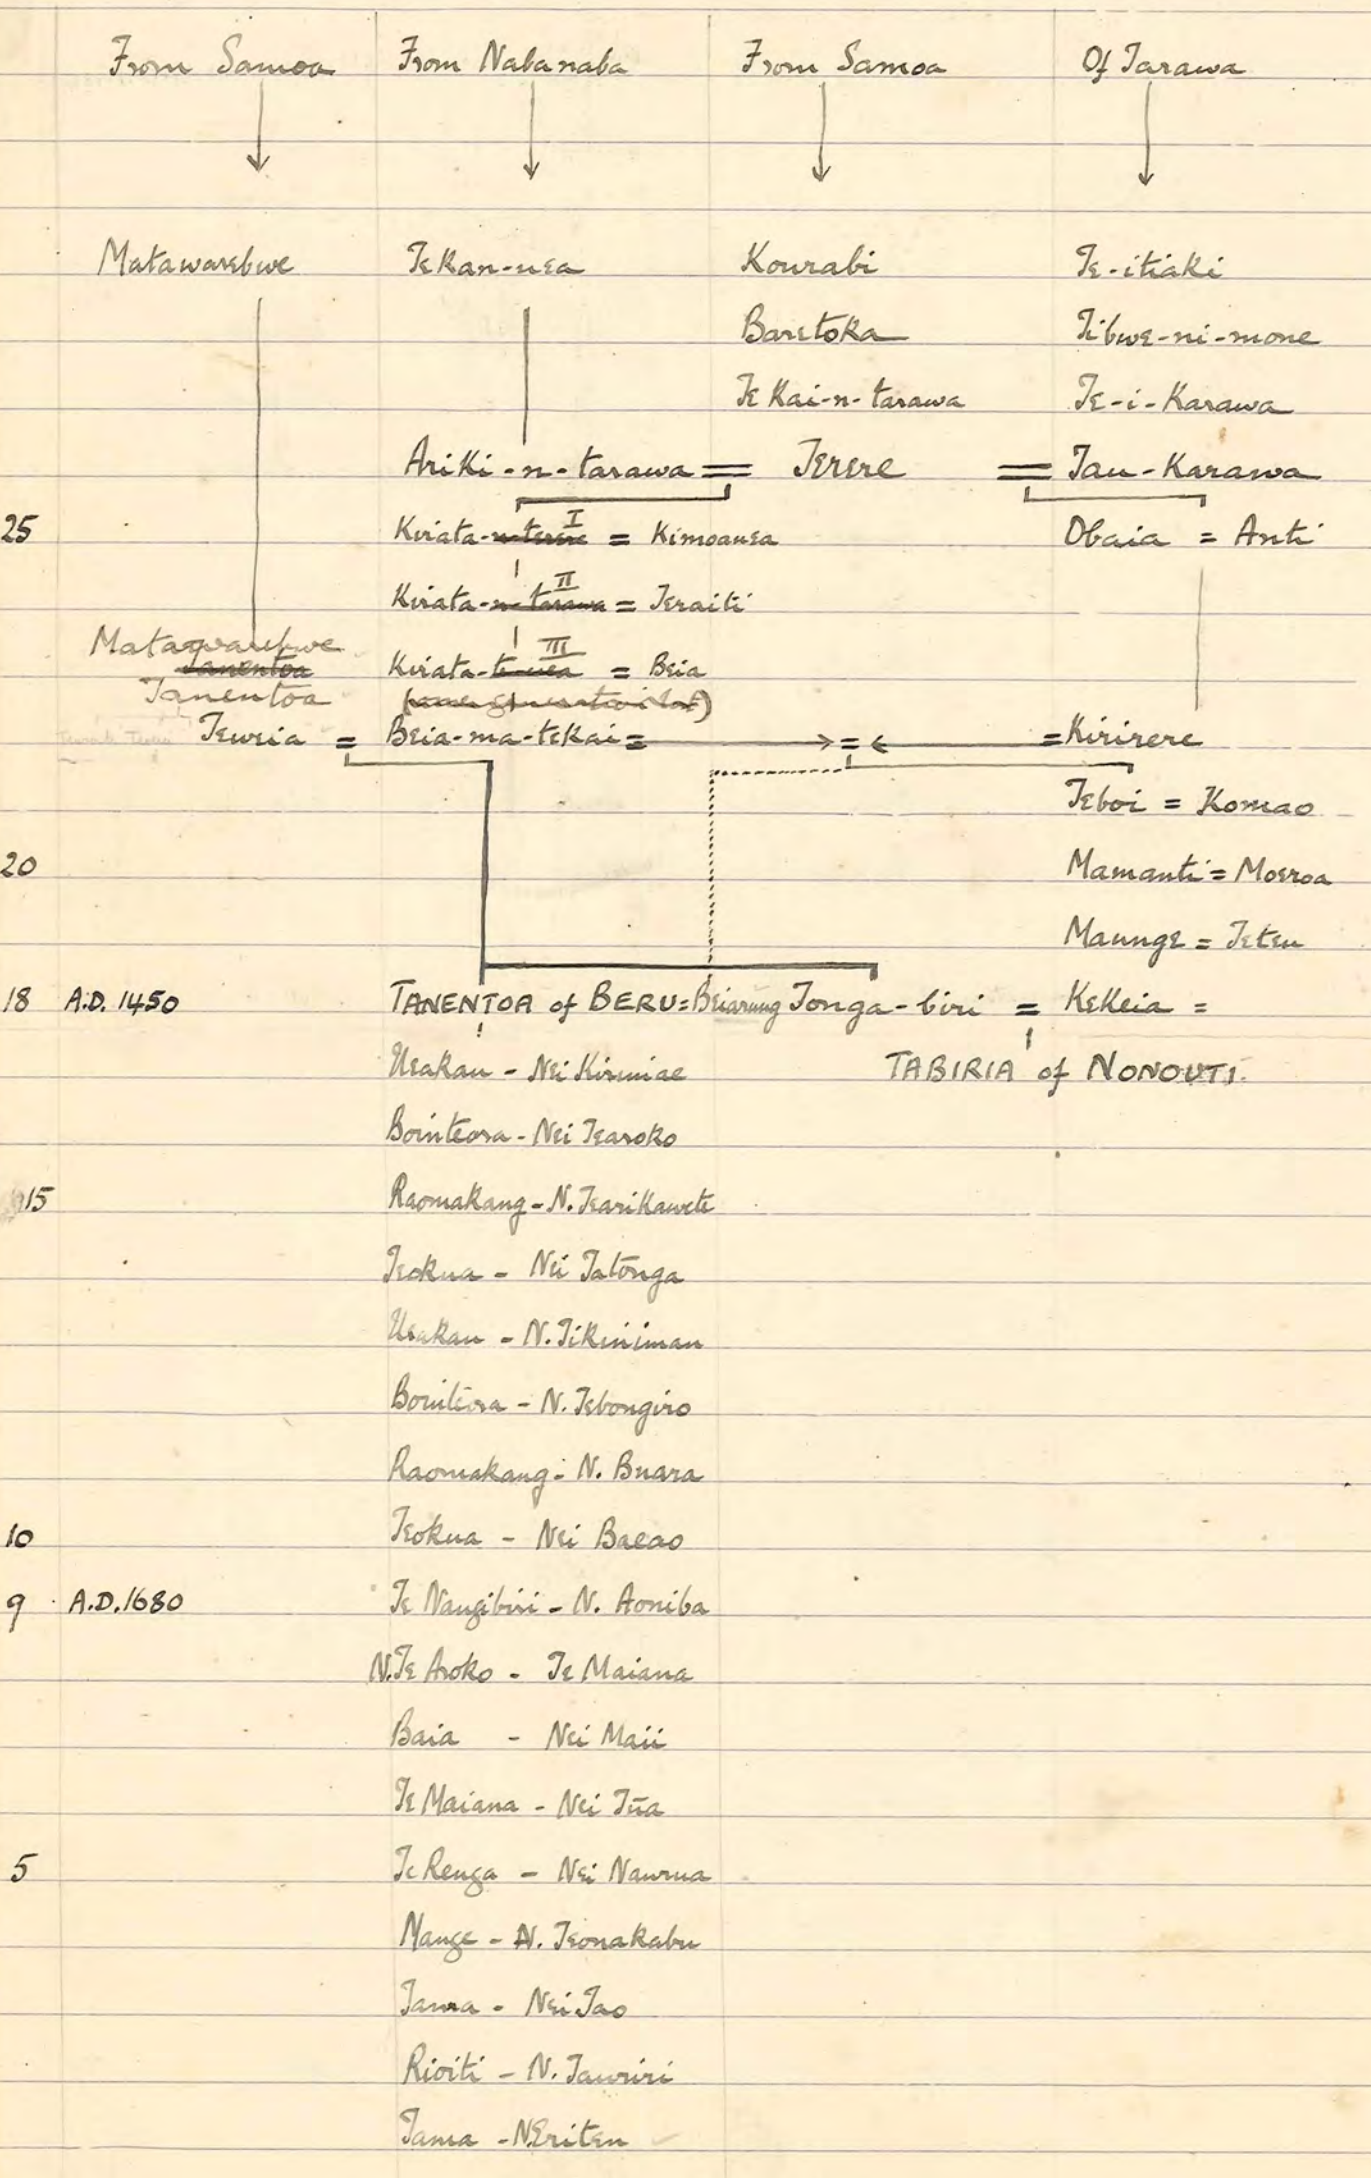 From Samoa From Nabanaba From Samoa Of Tarawa
Matawarebwe Tekan-nea Kourabi Te-itiaki
Baretoka Tibwe-ni-mone
Te Kai-n-tarawa Te-i-Karawa
Ariki-n-tarawa = Terere = Tau-Karawa
25 Kirata-n-terere I = Kimoauea Obaia = Anti
Kirata-n-tarawa II = Teraiti
Matawarebwe
Tanentoa Kirata-te-uea III = Beia
Tanentoa
Teweia = Beia-ma-tekai = = = Kirirere
Teboi = Komao
20 Mamanti = Moeroa
Maunge = Teteu
18 A.D. 1450 TANENTOA of BERU = Beiarung Tonga-biri = Kekeia =
Ueakau - Nei Kiruniae TABIRIA of NONOUTI.
Bointeora - Nei Tearoko
15 Raomakang - N. Tearikawete
Teokua - Nei Tatonga
Ueakau - N. Tikiniman
Bointeora - N. Tebongiro
Raomakang - N. Buara
10 Teokua - Nei Baeao
9 A.D. 1680 Te Naugibiri - N. Aoniba
N. Te Aroko - Te Maiana
Baia - Nei Maii
Te Maiana - Nei Tūa
5 Te Renga - Nei Naurua
Nange - N. Teonakabu
Tawa - Nei Tao
Rioiti - N. Tauriri
Tama - N Eriten